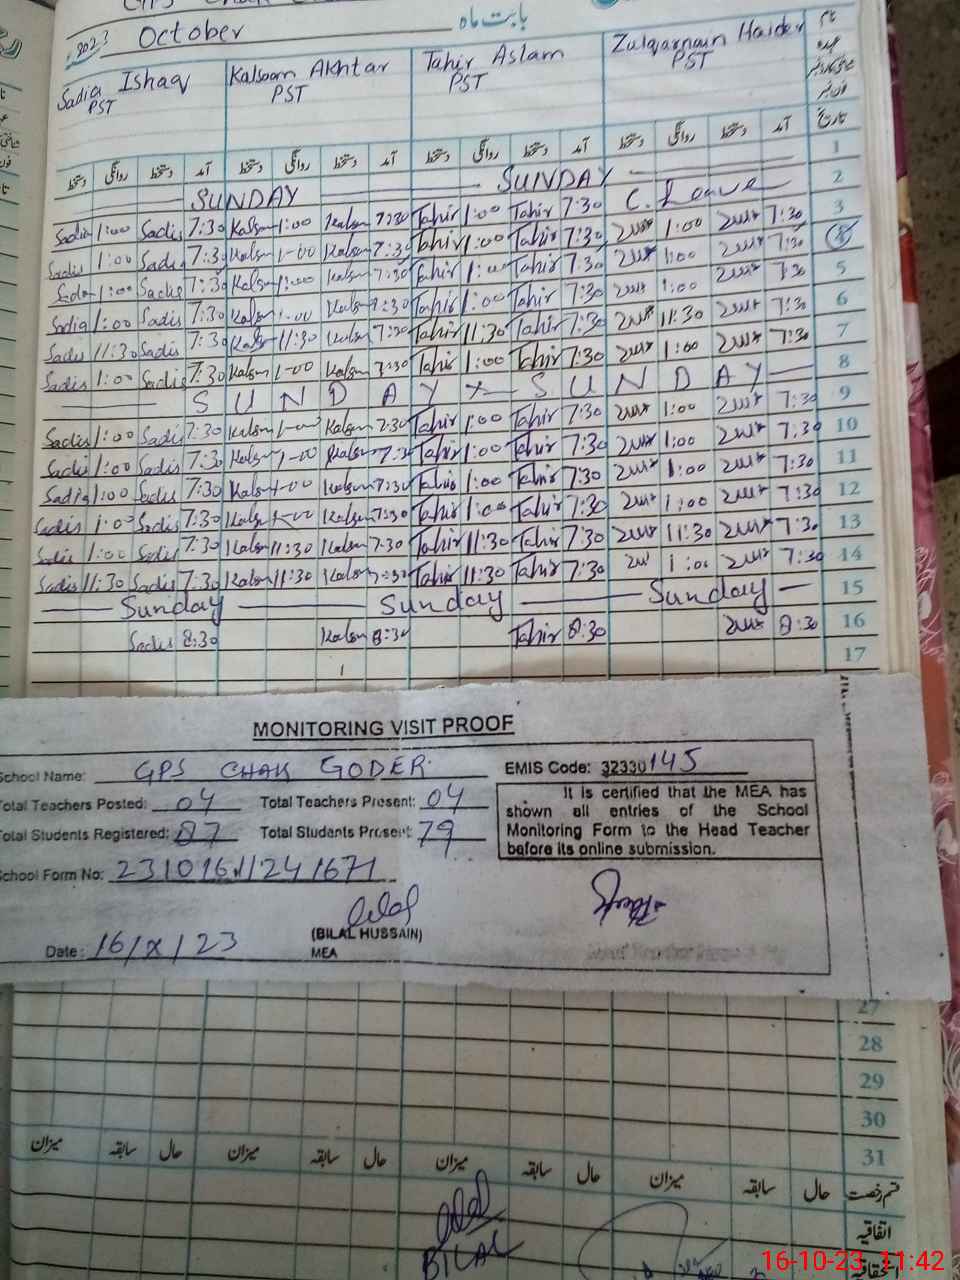 GPS Chak
2023 October بابت ماہ
Sadia Ishaq Kalsoom Akhtar Tahir Aslam Zulqarnain Haider نام
PST PST PST PST عہدہ
تاریخ
دستخط روانگی دستخط آمد دستخط روانگی دستخط آمد دستخط روانگی دستخط آمد دستخط روانگی دستخط آمد 1
SUNDAY SUNDAY 2
Sadia 1:00 Sadia 7:30 Kalsom 1:00 Kalsom 7:30 Tahir 1:00 Tahir 7:30 C. Leave 3
Sadia 1:00 Sadia 7:30 Kalsom 1-00 Kalsom 7:30 Tahir 1:00 Tahir 7:30 1:00 7:30 4
Sadia 1:00 Sadia 7:30 Kalsom 1:00 Kalsom 7:30 Tahir 1:00 Tahir 7:30 1:00 7:30 5
Sadia 1:00 Sadia 7:30 Kalsom 1-00 Kalsom 7:30 Tahir 1:00 Tahir 7:30 1:00 7:30 6
Sadia 11:30 Sadia 7:30 Kalsom 11:30 Kalsom 7:30 Tahir 11:30 Tahir 7:30 11:30 7:30 7
Sadia 1:00 Sadia 7:30 Kalsom 1-00 Kalsom 7:30 Tahir 1:00 Tahir 7:30 1:00 7:30 8
S U N D A Y X S U N D A Y 9
Sadia 1:00 Sadia 7:30 Kalsom 1-00 Kalsom 7:30 Tahir 1:00 Tahir 7:30 1:00 7:30 10
Sadia 1:00 Sadia 7:30 Kalsom 1-00 Kalsom 7:30 Tahir 1:00 Tahir 7:30 1:00 7:30 11
Sadia 1:00 Sadia 7:30 Kalsom 1-00 Kalsom 7:30 Tahir 1:00 Tahir 7:30 1:00 7:30 12
Sadia 1:00 Sadia 7:30 Kalsom 1-00 Kalsom 7:30 Tahir 1:00 Tahir 7:30 1:00 7:30 13
Sadia 1:00 Sadia 7:30 Kalsom 11:30 Kalsom 7:30 Tahir 11:30 Tahir 7:30 11:30 7:30 14
Sadia 11:30 Sadia 7:30 Kalsom 11:30 Kalsom 7:30 Tahir 11:30 Tahir 7:30 1:00 7:30
Sunday Sunday Sunday 15
Sadia 8:30 Kalsom 8:30 Tahir 8:30 8:30 16
17
MONITORING VISIT PROOF
School Name: GPS CHAK GODER EMIS Code: 32330145
Total Teachers Posted: 04 Total Teachers Present: 04
Total Students Registered: 87 Total Students Present: 79
It is certified that the MEA has
shown all entries of the School
Monitoring Form to the Head Teacher
before its online submission.
School Form No:
(BILAL HUSSAIN)
Date: 16/X/23 MEA
27
28
29
30
31
میزان سابقہ حال میزان سابقہ حال میزان سابقہ حال میزان سابقہ حال قسم رخصت
اتفاقیہ
BILAL استحقاقیہ
16-10-23 11:42